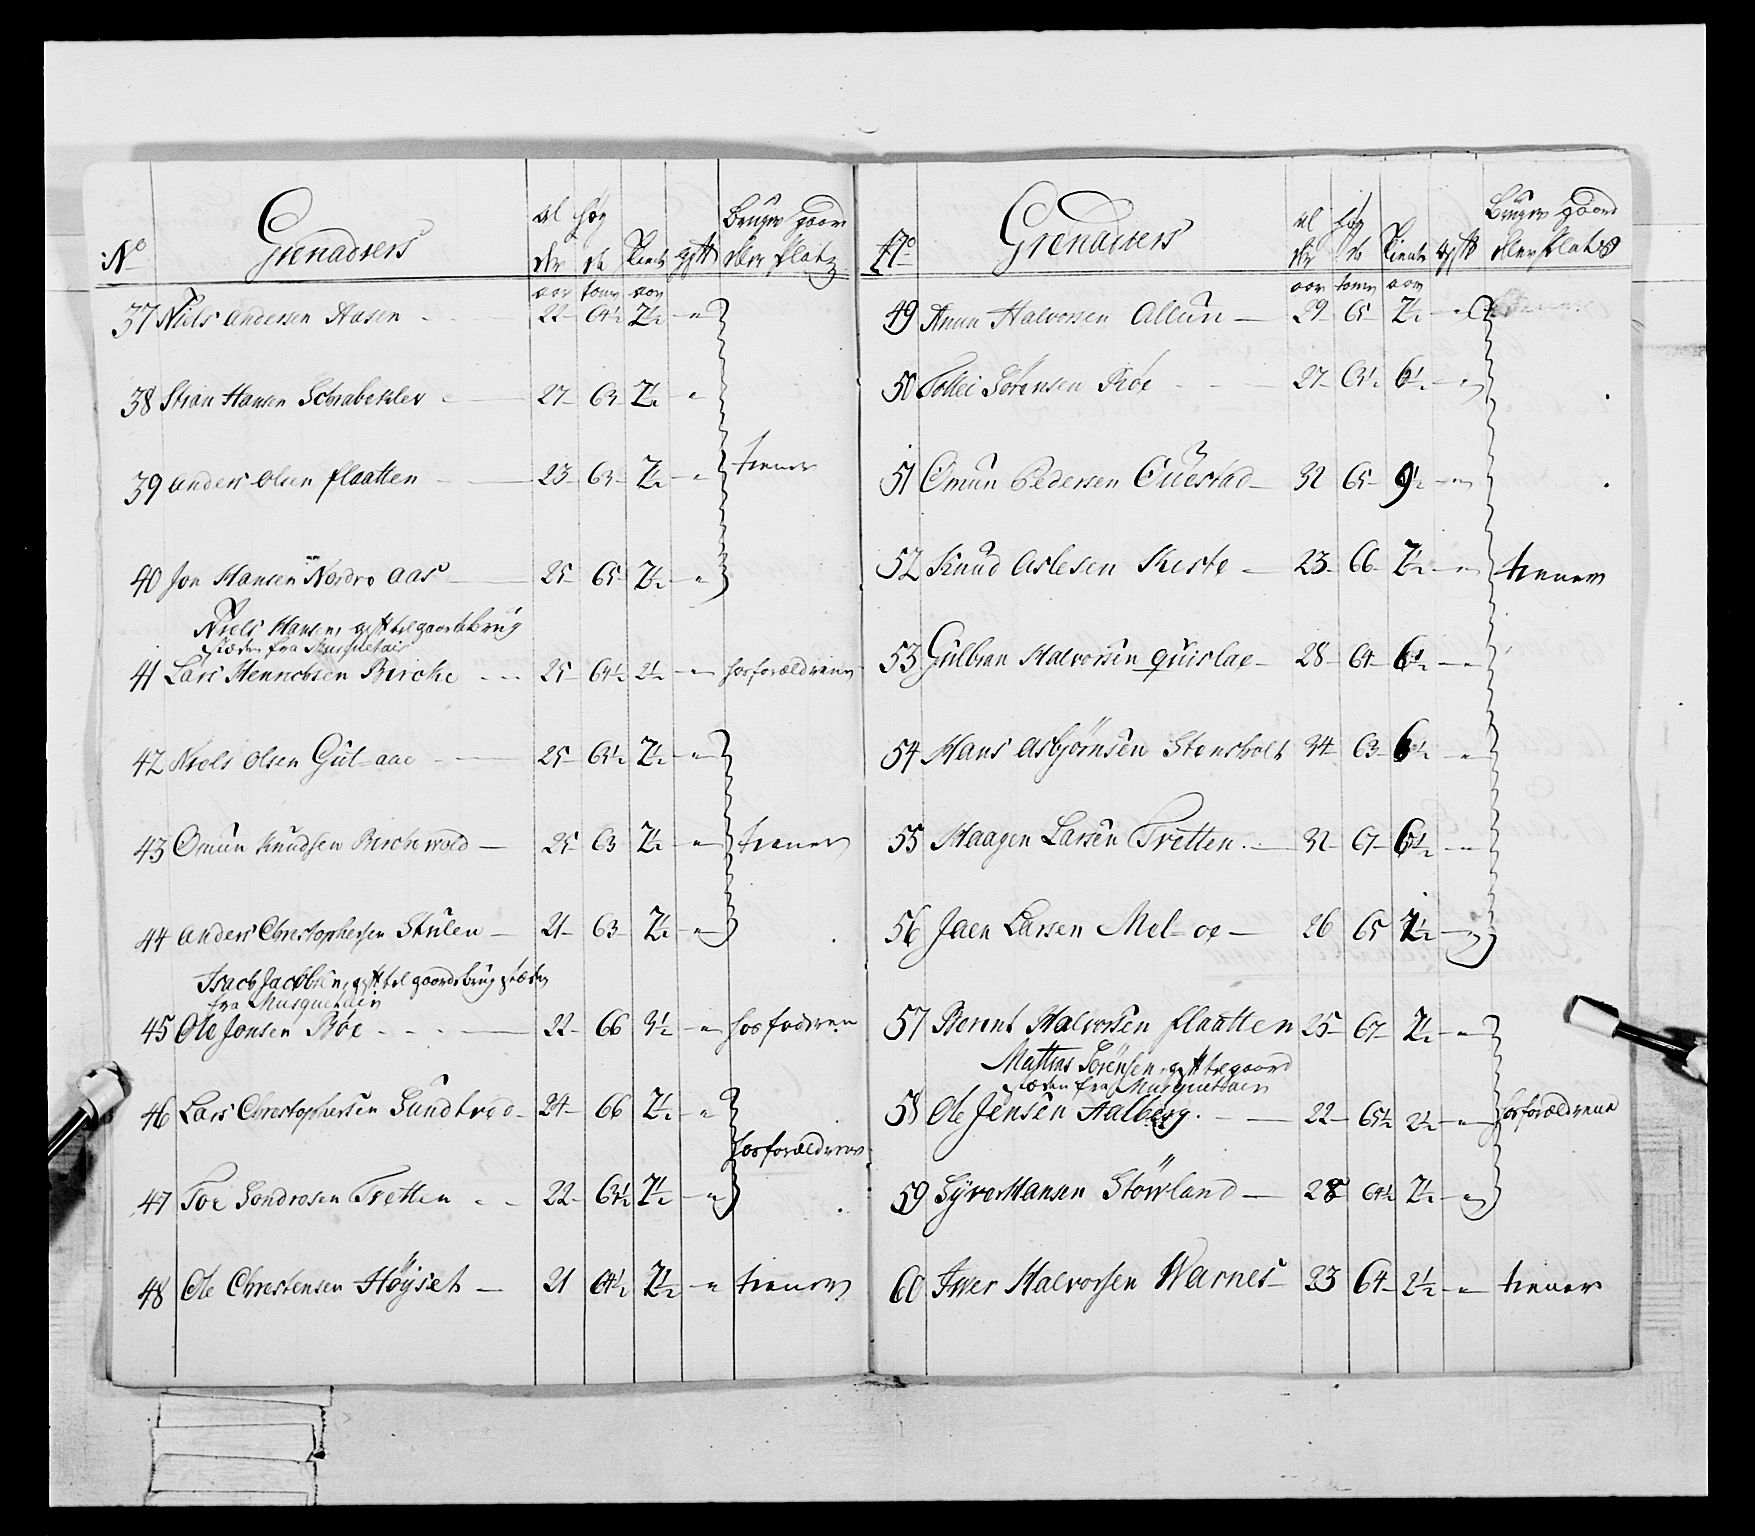 No Grenadeers Al der høy de tient gift Bruger gaard eller platz
aar tomr aar
37 Niels Andersen Aasen 22 64½ 7½ "
38 Stian Hansen 27 63 7½ "
39 Anders Olsen flaatten 23 63 7½ " tiener
40 Jon Hansen Nordre Aas 25 65 7½ "
Niels Hansen, gift til gaardebrug
fra Musquetair
41 Lars Henrichsen Bircke 25 64½ 2½ " hos forældrene
42 Niels Olsen Gulaae 25 63½ 7½ "
43 Omun Knudsen Birchwold 25 63 7½ " tiener
44 Anders Christophersen Skulen 21 63 7½ "
Isach Jacobsen, gift til gaardebrug støden
fra Musquetair
45 Ole Jonsen Bøe 22 66 3½ " hos fadren
46 Lars Christophersen Sundbroe 24 66 7½ "
hos forældrene
47 Toe Sondresen Tvetten 22 63½ 7½ "
48 Ole Christensen Höyset 21 64½ 7½ " tiener
No Grenadeers Al der høy de tient gift Bruger gaard eller platz
aar tomr aar
49 Amun Halvorsen Allum 29 65 7½ "
50 Tollei Sørensen Røe 27 63½ 6½ "
51 Omun Pedersen Questad 32 65 9½ "
52 Knud Aslesen Keste 23 66 7½ " tiener
53 Gulbran Halvorsen Quislae 28 64 6½ "
54 Hans Asbjørnsen Stensholt 34 63 6½ "
55 Haagen Larsen Tvetten 32 67 6½ "
56 Jaen Larsen Meloe 26 65 7½ "
57 Berent Halvorsen flaatten 25 67 7½ "
Mathias Sørensen, gift til gaard
støden fra Musquetair
58 Ole Jensen Aalberg 22 65½ 2½ " hos forældrene
59 Syver Hansen Stöwland 28 64½ 7½ "
60 Iwer Halvorsen Warnes 23 64 2½ " tiener